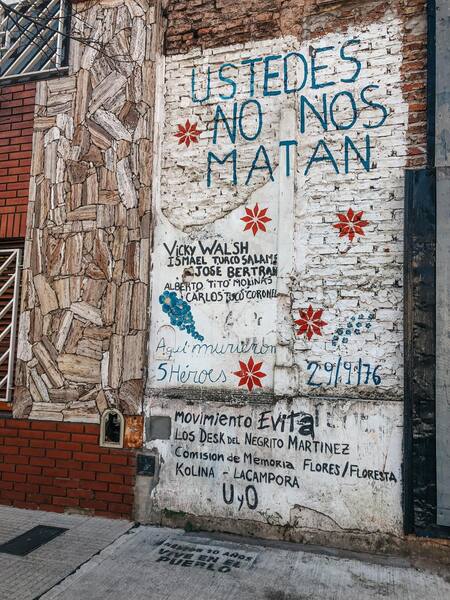 USTEDES
NO NOS
MATAN
VICKY WALSH
ISMAEL TURCO SALAME
JOSE BERTRAN
ALBERTO TITO MOLINAS
CARLOS TUCO CORONEL
Aquí murieron
5 Héroes
29/9/76
MOVIMIENTO EVITA
LOS DESK DEL NEGRITO MARTINEZ
COMISION DE MEMORIA FLORES/FLORESTA
KOLINA - LACAMPORA
U,O
AÑOS
VIVE EN EL
PUEBLO